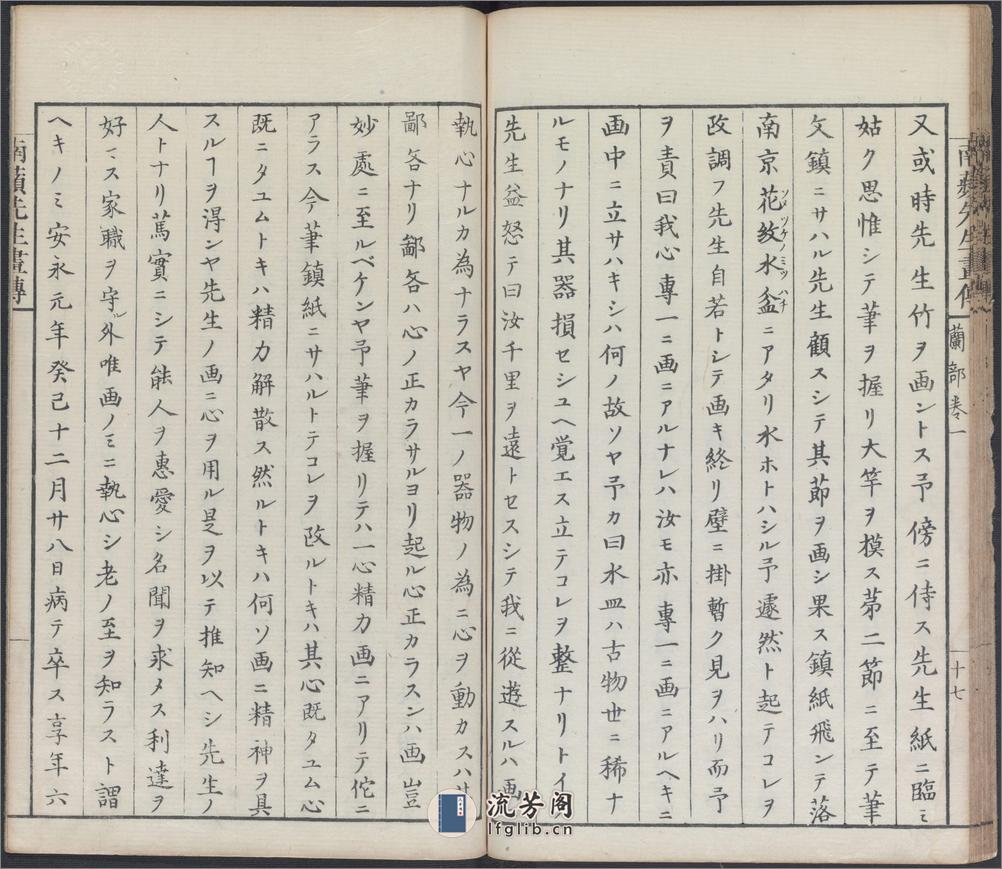 又或時先生竹ヲ画ントス予傍ニ侍ス先生紙ニ臨ミ
姑ク思惟シテ筆ヲ握リ大竿ヲ模ス苐二節ニ至テ筆
文鎮ニサハル先生顧スシテ其節ヲ画シ果ス鎮紙飛ンテ落
南京花紋水盆ニアタリ水ホトハシル予遽然ト起テコレヲ
ソメツケノミツハチ
改調フ先生自若トシテ画キ終リ壁ニ掛暫ク見ヲハリ而予
ヲ責曰我心専一ニ画ニアルナレハ汝モ亦専一ニ画ニアルヘキニ
画中ニ立サハキシハ何ノ故ソヤ予カ曰水皿ハ古物世ニ稀ナ
ルモノナリ其器損セシユヘ覚エス立テコレヲ整ナリトイ
先生益怒テ曰汝千里ヲ遠トセスシテ我ニ從遊スルハ画
蘭部巻一
十七
執心ナルカ為ナラスヤ今一ノ器物ノ為ニ心ヲ動カスハ
鄙吝ナリ鄙吝ハ心ノ正カラサルヨリ起ル心正カラスンハ画豈
妙處ニ至ルベケンヤ予筆ヲ握リテハ一心精力画ニアリテ佗ニ
アラス今筆鎮紙ニサハルトテコレヲ改ルトキハ其心既タユム心
既ニタユムトキハ精力解散ス然ルトキハ何ソ画ニ精神ヲ具
スルヿヲ得ンヤ先生ノ画ニ心ヲ用ル是ヲ以テ推知ヘシ先生ノ
人トナリ篤實ニシテ能人ヲ惠愛シ名聞ヲ求メス利達ヲ
好マス家職ヲ守ル外唯画ノミニ執心シ老ノ至ヲ知ラスト謂
ヘキノミ安永元年癸己十二月廿八日病テ卒ス享年六
南蘋先生畫傳
流芳阁
lfglib.cn